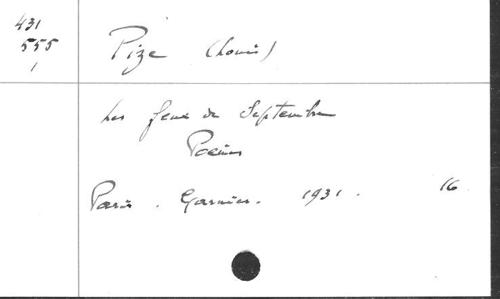 431
555
1
Pize (Louis)
Les feux de Septembre
Poèmes
Paris. Garnier. 1931. 16